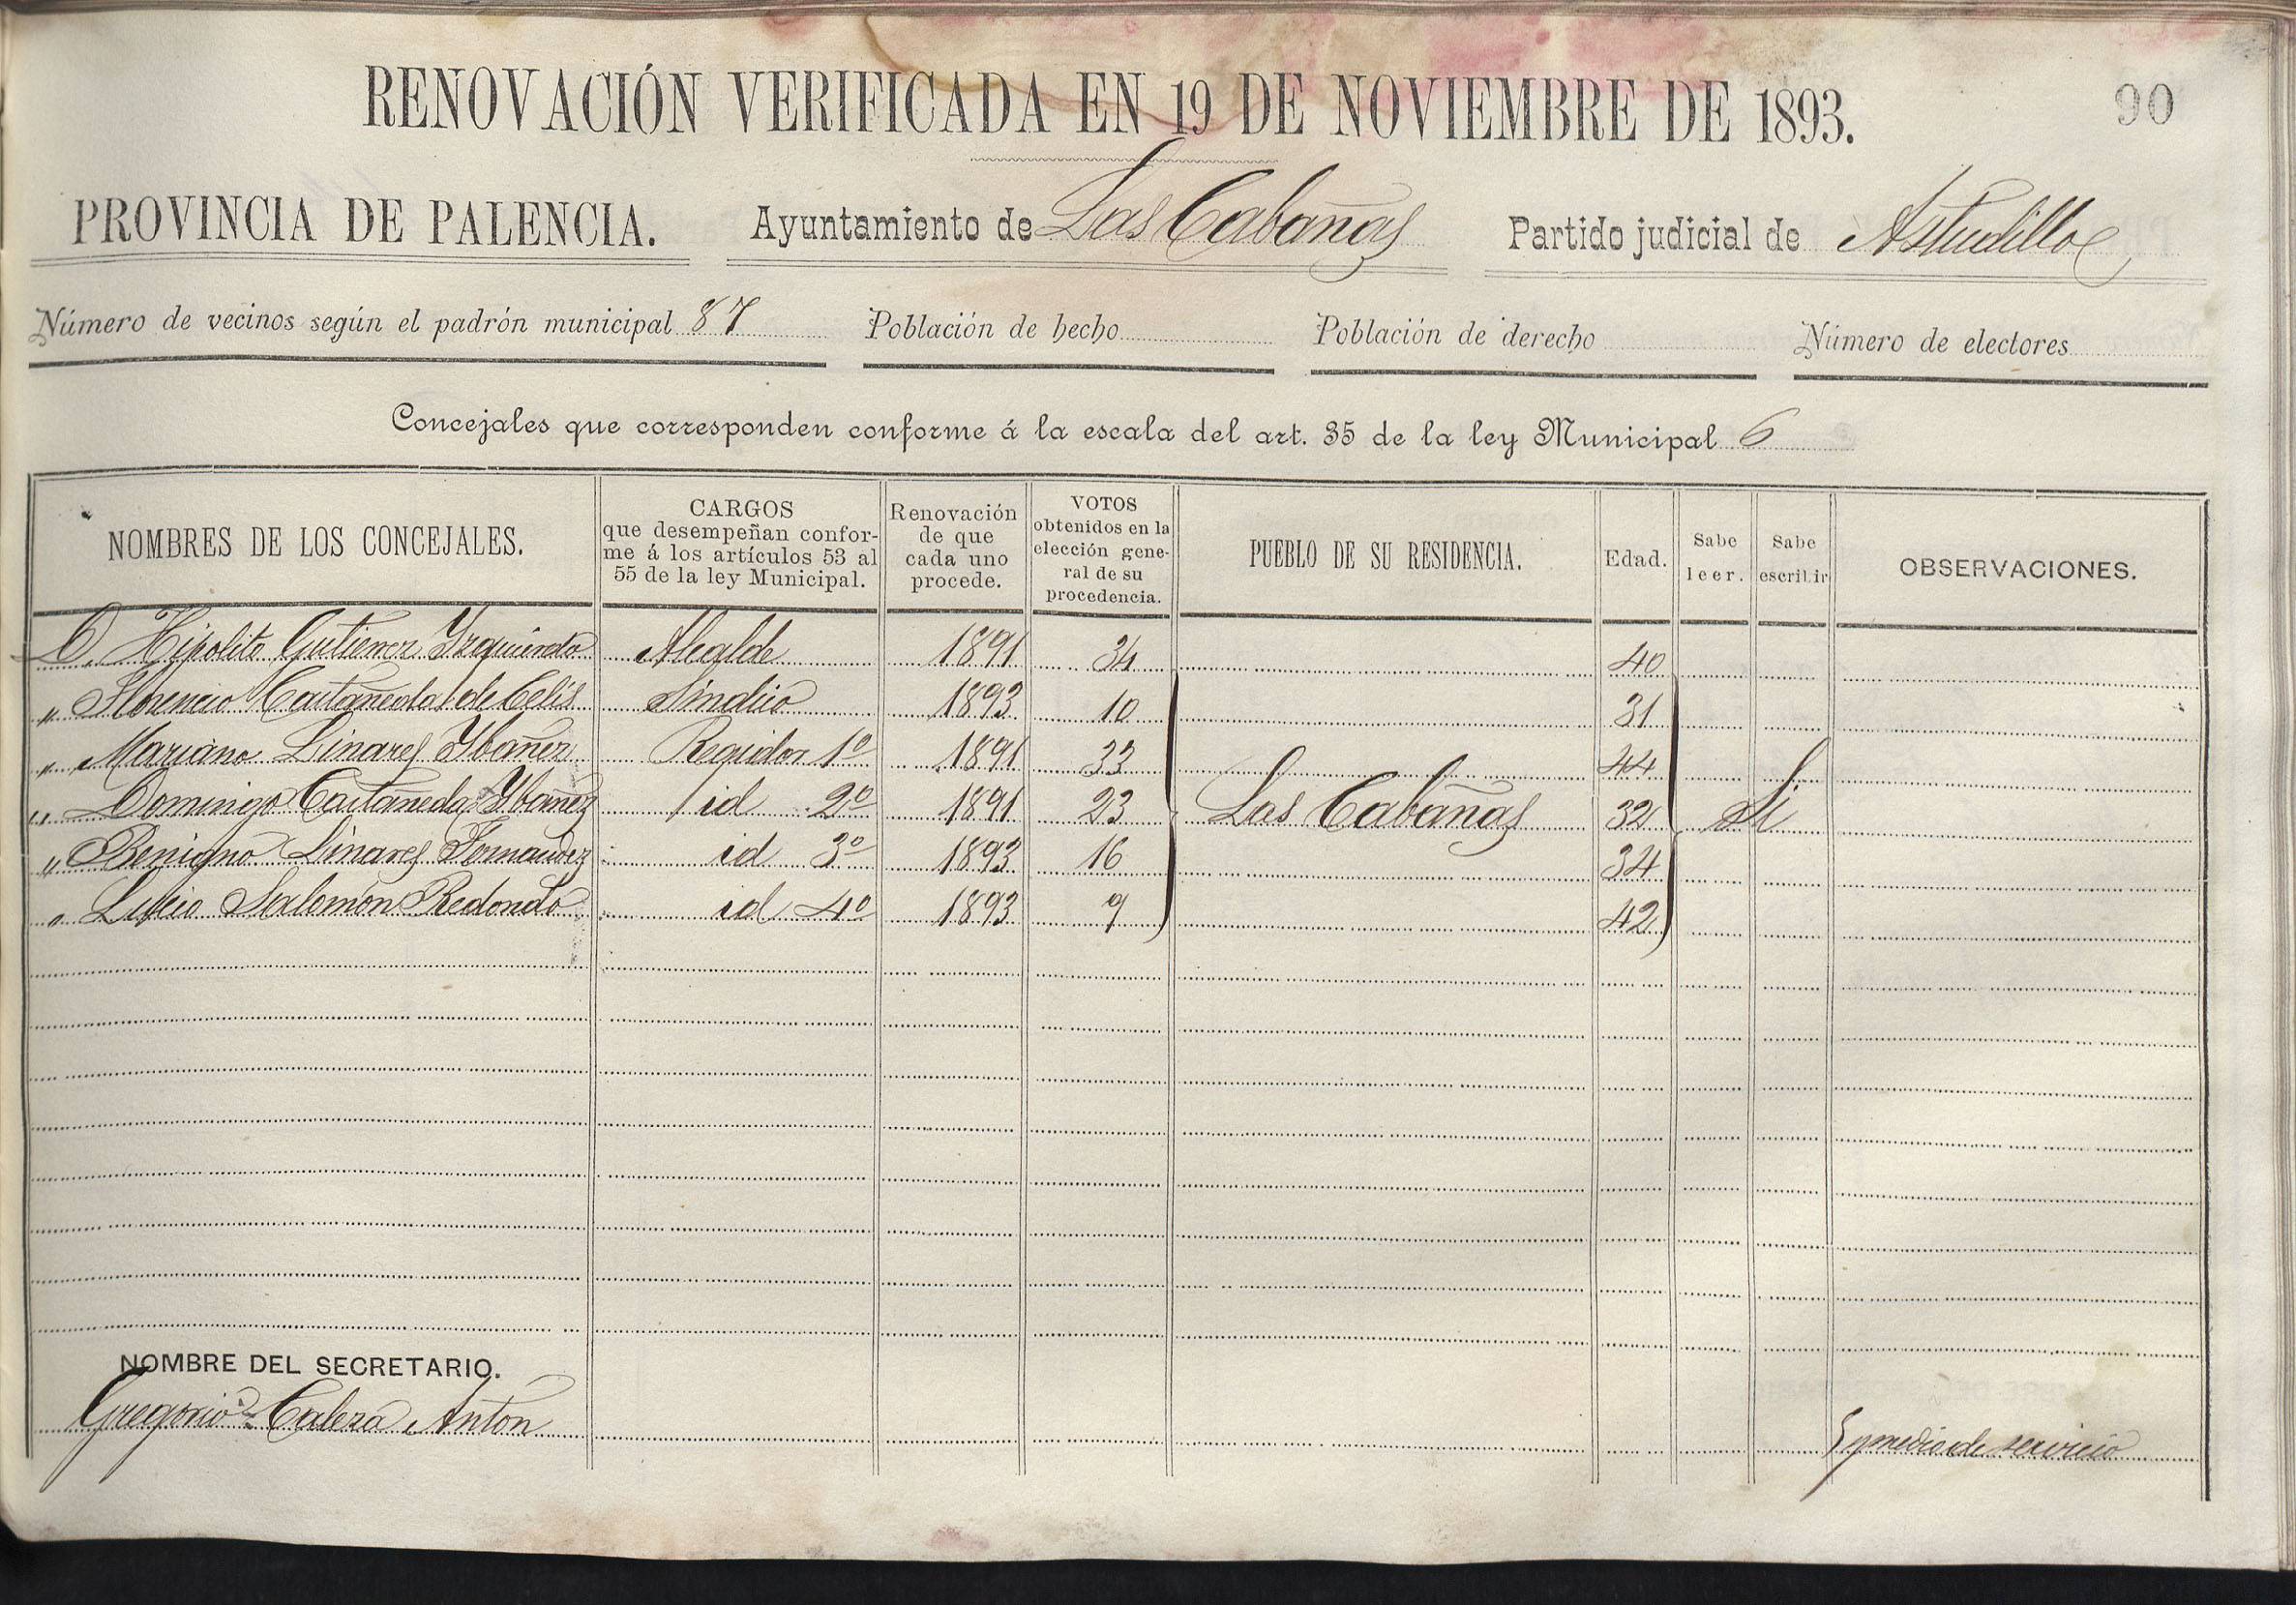 RENOVACIÓN VERIFICADA EN 19 DE NOVIEMBRE DE 1893.
90
PROVINCIA DE PALENCIA. Ayuntamiento de Las Cabañas Partido judicial de Astudillo
Número de vecinos según el padrón municipal 87 Población de hecho Población de derecho Número de electores
Concejales que corresponden conforme á la escala del art. 35 de la ley Municipal 6
NOMBRES DE LOS CONCEJALES.
CARGOS
que desempeñan confor-
me á los artículos 53 al
55 de la ley Municipal.
Renovación
de que
cada uno
procede.
VOTOS
obtenidos en la
elección gene-
ral de su
procedencia.
PUEBLO DE SU RESIDENCIA.
Edad.
Sabe
leer.
Sabe
escribir
OBSERVACIONES.
D. Hipolito Gutierrez Yzquierdo Alcalde 1891 34 40
" Florencio Castañeda de Celis Sindico 1893 10 31
" Mariano Linares Ybañez Regidor 1º 1891 33 44
" Domingo Castañeda Ybañez id 2º 1891 23 Las Cabañas 32 Si
" Benigno Linares Fernandez id 3º 1893 16 34
" Lucio Salomón Redondo id 4º 1893 9 42
NOMBRE DEL SECRETARIO.
Gregorio Calera Anton 5 y medio de servicio